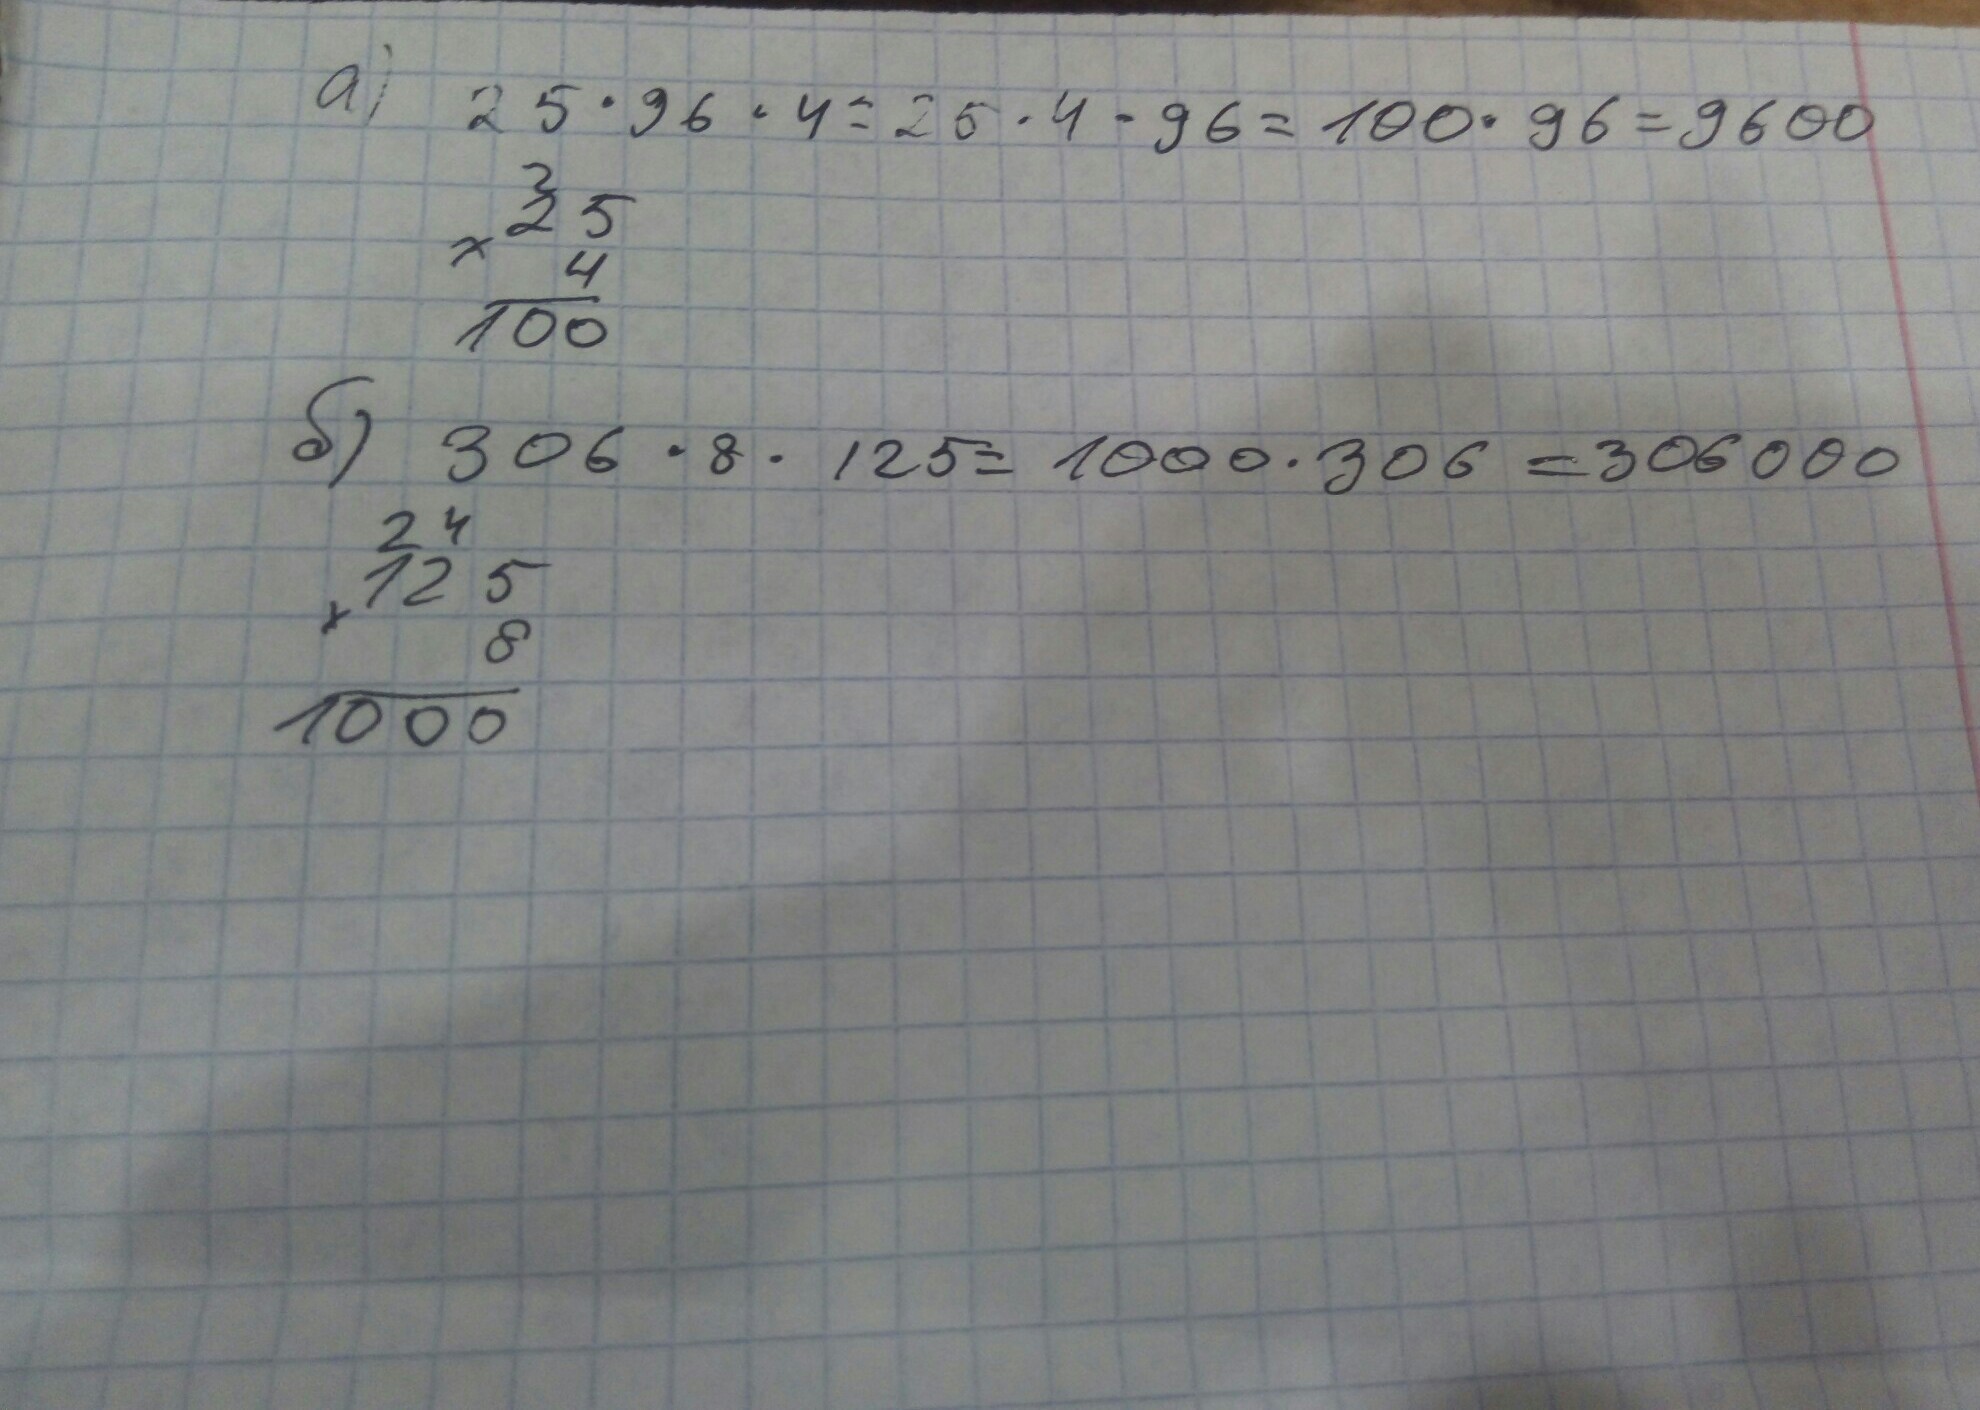 а) 25 · 96 · 4 = 25 · 4 · 96 = 100 · 96 = 9600
2
25
× 4
100
б) 306 · 8 · 125 = 1000 · 306 = 306000
24
125
× 8
1000